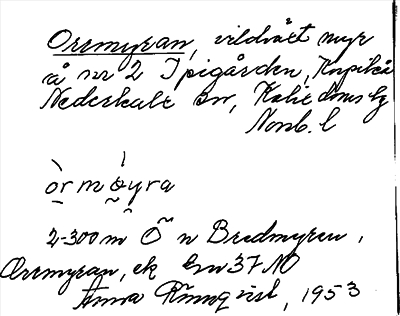 Orrmyran, vildvät myr
å nr 2 Ipigården, Korpikå
Nederkalix sn, Kalix domsbg
Norrb. l
òrmøyra
2-300 m Ö n Bredmyren,
Orrmyran, ek 37 NO
Anna Rönnqvist, 1953